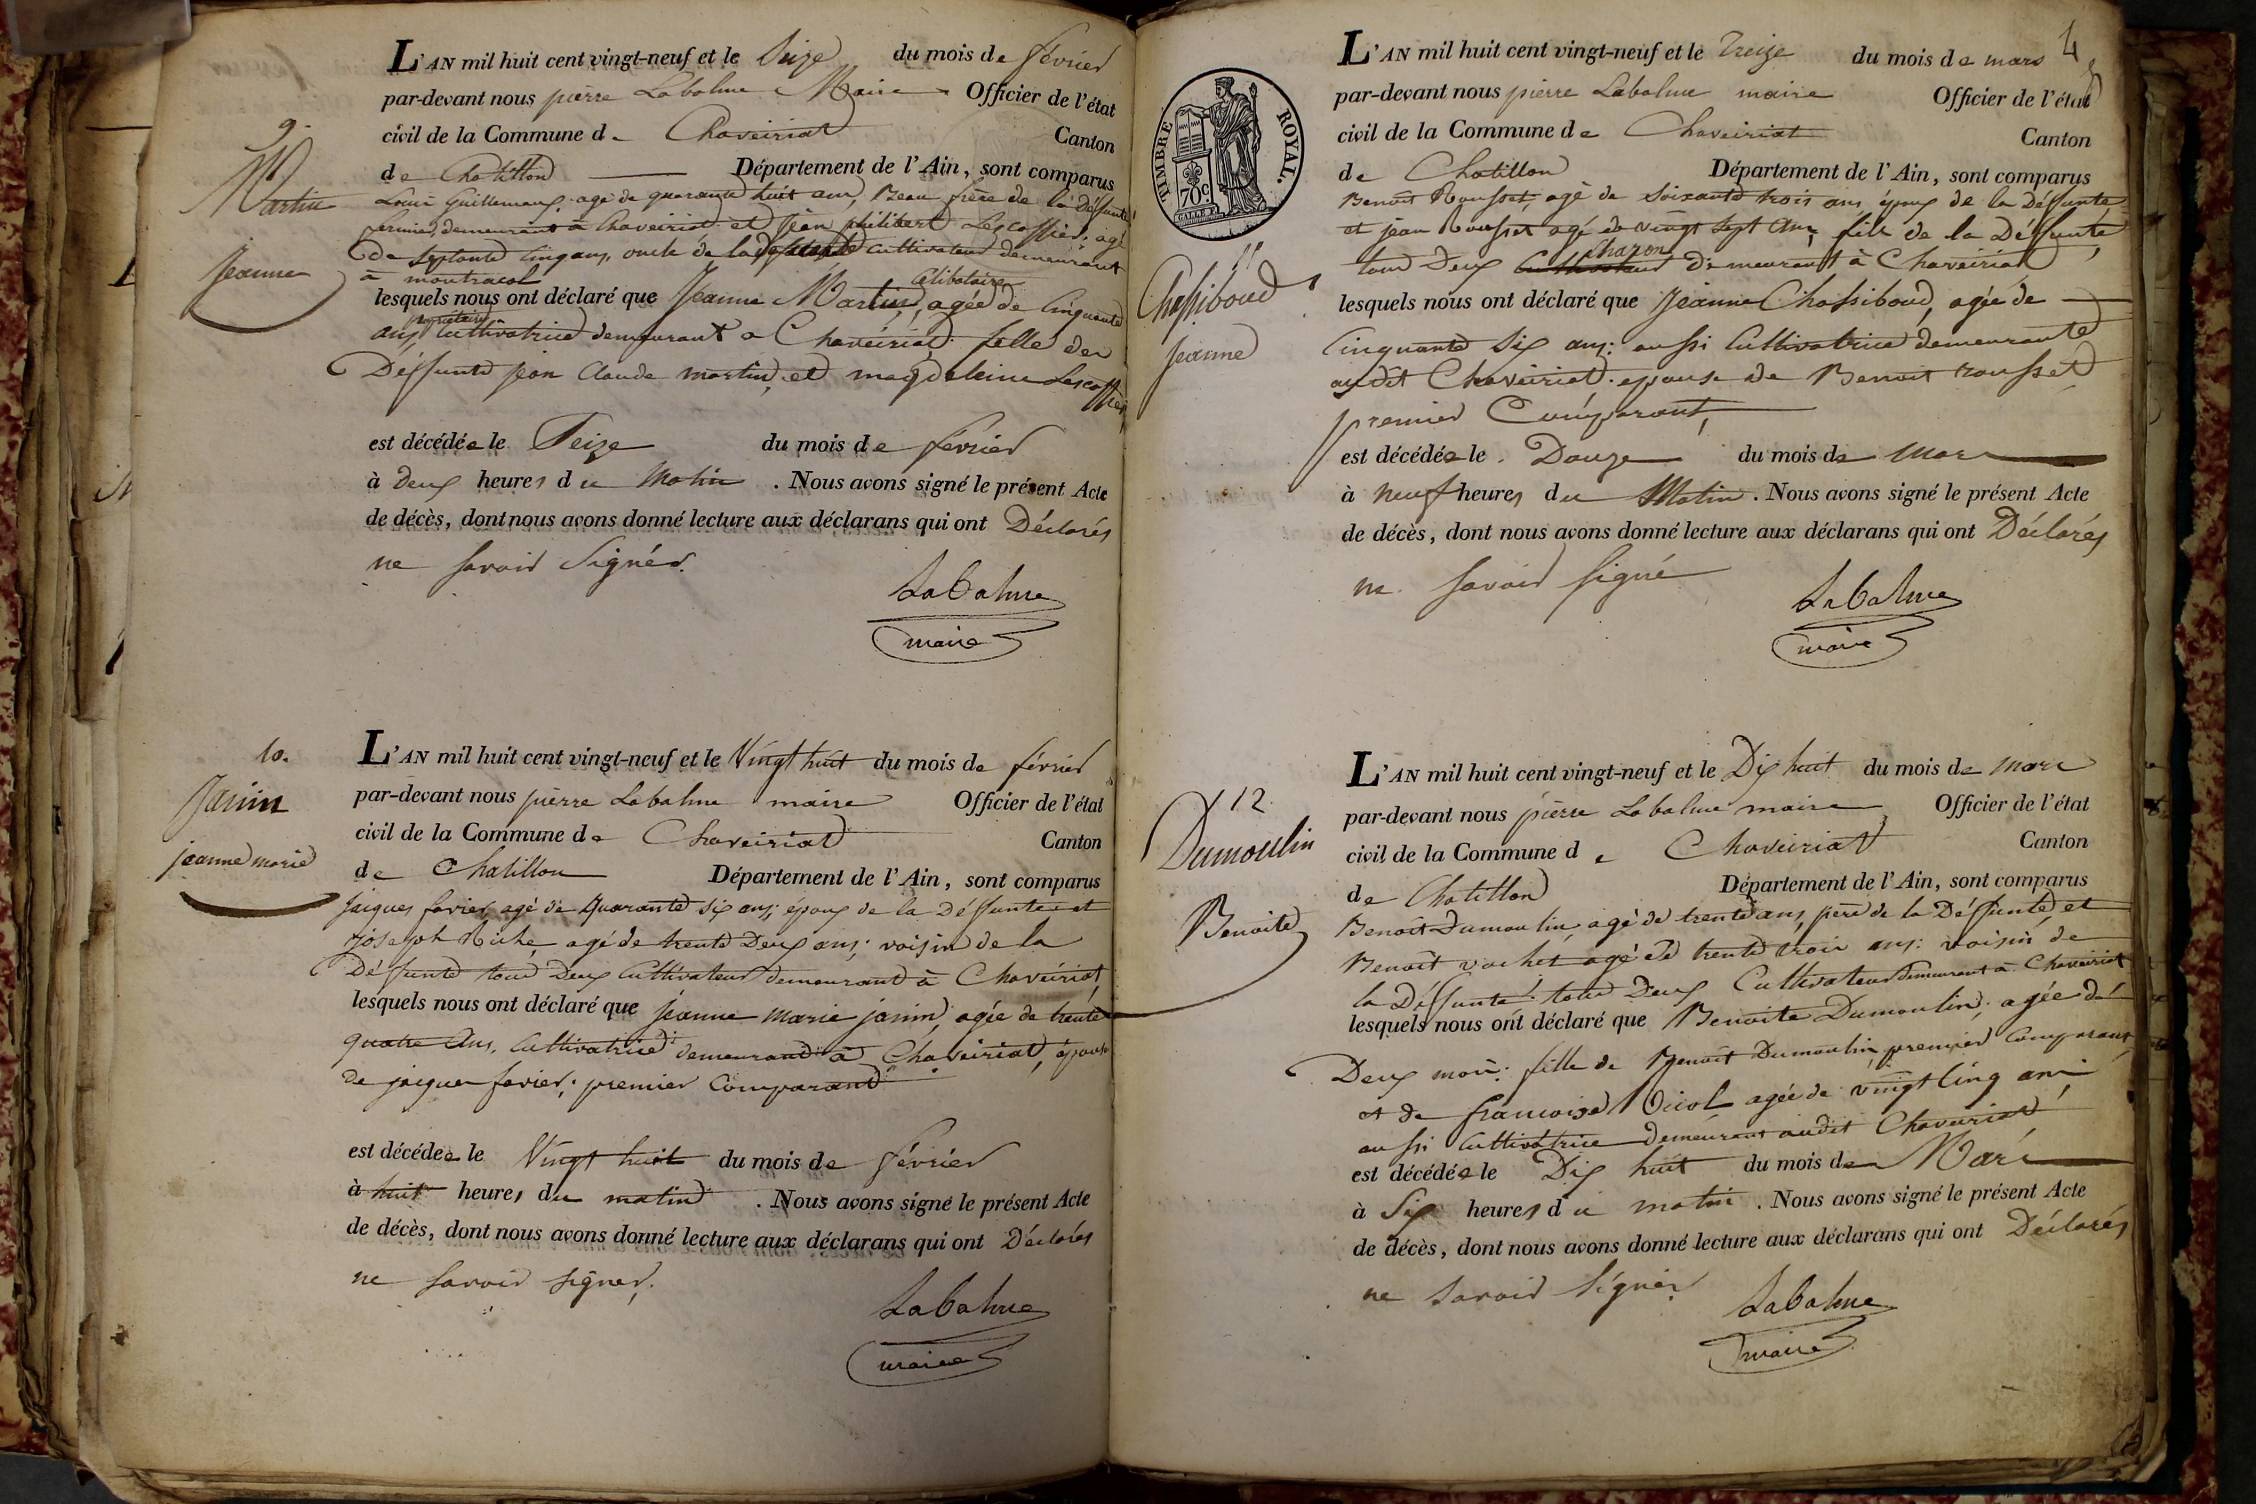 9.
Martin
Jeanne
L'AN mil huit cent vingt-neuf et le Seize du mois de février
par-devant nous pierre Labalme Maire Officier de l'état
civil de la Commune de Chaveiriat Canton
de Chatillon Département de l'Ain, sont comparus
Louis Guillemaud, agé de quarante huit ans, Beau frère de la déffunte
fermier, demeurant à Chaveiriat et Jean philibert Lescoffier, agé
De Septante Cinq ans, oncle de la déffunte Cultivateur demeurant
à montracol
lesquels nous ont déclaré que Jeanne Martin, Célibataire, agée de Cinquante
ans, propriétaire Cultivatrice demeurant a Chaveiriat fille des
Déffunts jean Claude martin, et magdeleine Lescoffier,
est décédée le Seize du mois de février
à Deux heures du Matin . Nous avons signé le présent Acte
de décès, dont nous avons donné lecture aux déclarans qui ont Déclarés
ne savoir Signés.
Labalme
maire
10.
Janin
jeanne marie
L'AN mil huit cent vingt-neuf et le Vingt huit du mois de février
par-devant nous pierre Labalme maire Officier de l'état
civil de la Commune de Chaveiriat Canton
de Chatillon Département de l'Ain, sont comparus
Jaiques favier, agé de Quarante six ans, époux de la Déffunte et
Joseph Riche, agé de trente Deux ans, voisin de la
Déffunte tout Deux Cultivateur demeurant à Chaveiriat,
lesquels nous ont déclaré que jeanne marie janin, agée de trente
quatre Ans, Cultivatrice demeurand à Chaveiriat, épouse
de jaiques favier, premier Comparand
est décédée le Vingt huit du mois de février
à huit heures du matin . Nous avons signé le présent Acte
de décès, dont nous avons donné lecture aux déclarans qui ont Déclarés
ne savoir signer.
Labalme
maire
4
TIMBRE ROYAL.
70c.
11
Chassiboud
Jeanne
L'AN mil huit cent vingt-neuf et le Treize du mois de mars
par-devant nous pierre Labalme maire Officier de l'état
civil de la Commune de Chaveiriat Canton
de Chatillon Département de l'Ain, sont comparus
Benoit Rousset, agé de Soixante trois ans, époux de la Déffunte
et jean Rousset agé de vingt Sept Ans, fils de la Déffunte
tout Deux Cultivateur Charon Demeurant à Chaveiriat,
lesquels nous ont déclaré que Jeanne Chassiboud, agée de
Cinquante Six ans: aussi Cultivatrice demeurante
audit Chaveiriat. epouse de Benoit rousset
premier Comparant,
est décédée le Douze du mois de Mars
à neuf heures du Matin . Nous avons signé le présent Acte
de décès, dont nous avons donné lecture aux déclarans qui ont Déclarés
ne savoir signé
Labalme
maire
12.
Dumoulin
Benoite
L'AN mil huit cent vingt-neuf et le Dix huit du mois de mars
par-devant nous pierre Labalme maire Officier de l'état
civil de la Commune de Chaveiriat Canton
de Chatillon Département de l'Ain, sont comparus
Benoit Dumoulin, agé de trente ans, père de la Déffunte, et
Benoit vachet agé de trente trois ans: voisin de
la Déffunte tout Deux Cultivateur demeurant à Chaveiriat
lesquels nous ont déclaré que Benoite Dumoulin, agée de
Deux mois: fille de Benoit Dumoulin premier Comparant
et de francoise agée de vingt Cinq ans
aussi Cultivatrice demeurant audit Chaveiriat,
est décédée le Dix huit du mois de Mars
à Six heures du matin . Nous avons signé le présent Acte
de décès, dont nous avons donné lecture aux déclarans qui ont Déclarés
ne savoir Signér
Labalme
maire